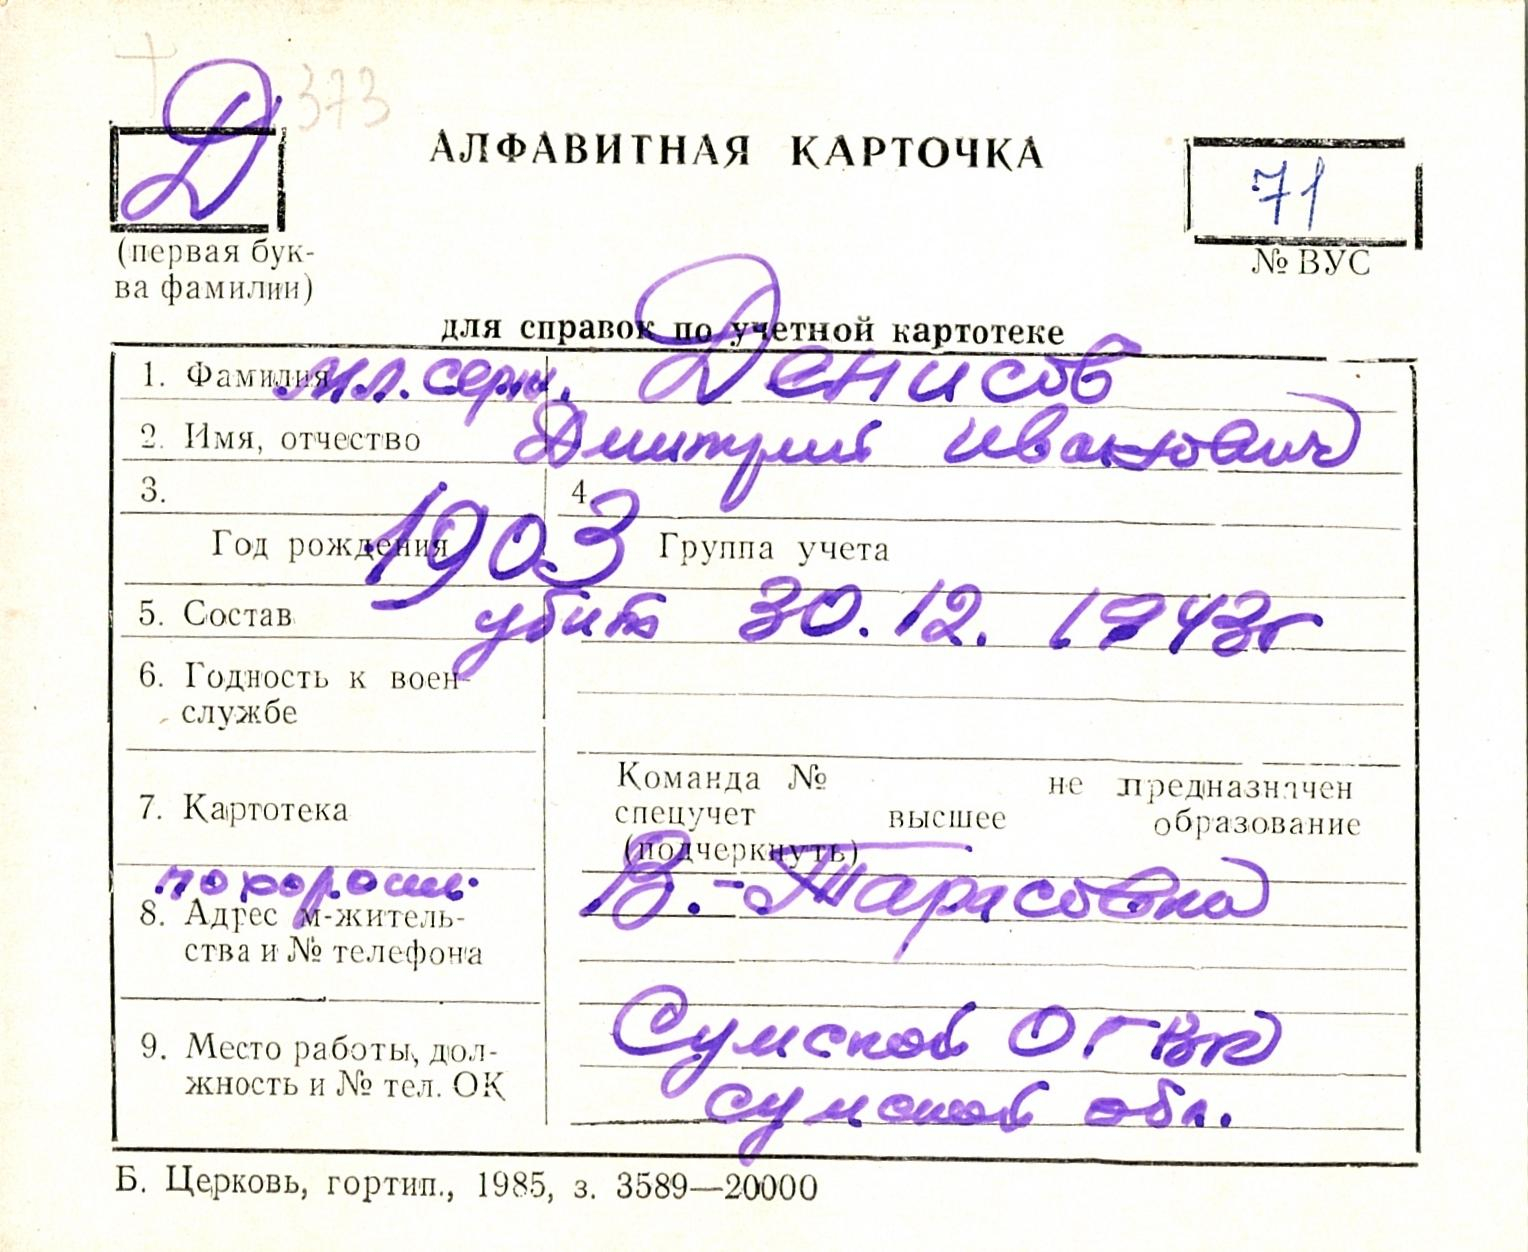 † 373
Д
АЛФАВИТНАЯ КАРТОЧКА
71
(первая бук-
ва фамилии)
№ ВУС
для справок по учетной картотеке
1. Фамилия мл. серж. Денисов
2. Имя, отчество Дмитрий Иванович
3. 4.
Год рождения 1903 Группа учета
5. Состав убит 30.12.1943г
6. Годность к воен-
службе
Команда № не предназначен
7. Картотека
спецучет высшее образование
(подчеркнуть)
похорон. В.-Тарасовка
8. Адрес м-житель-
ства и № телефона
Сумской ОГВК
9. Место работы, дол-
жность и № тел. ОК
Сумской обл.
Б. Церковь, гортип., 1985, з. 3589—20000